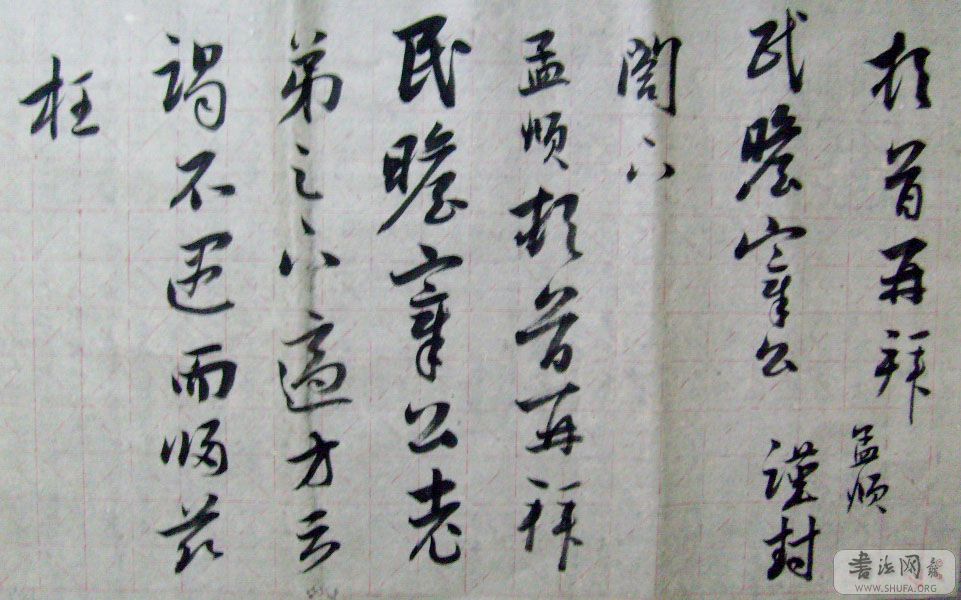 頓首再拜 孟頫
民瞻宰公 謹封
閣下
孟頫頓首再拜
民瞻宰公老
弟足下適方走
謁不遇而歸茲
枉
書法网
WWW.SHUFA.ORG